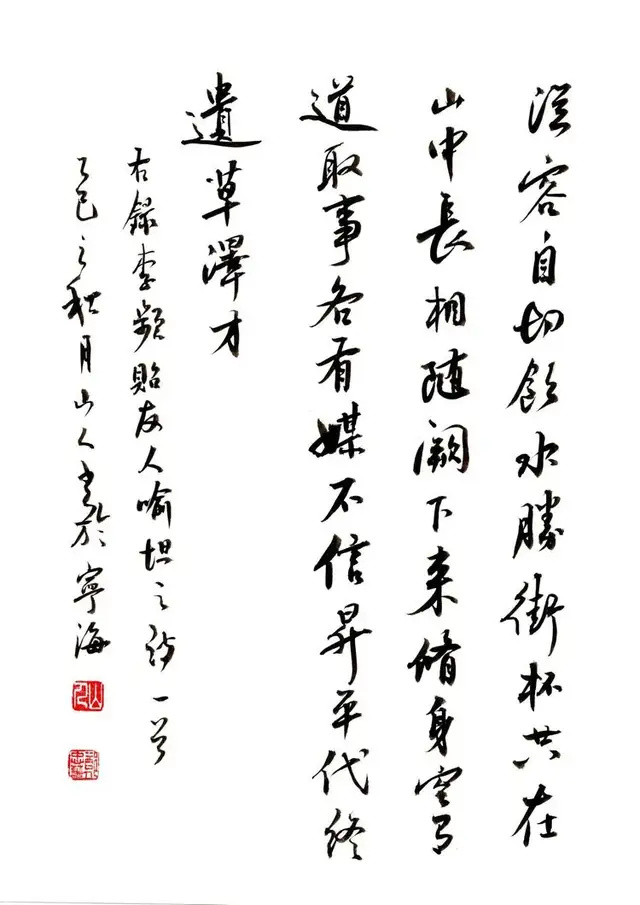 從容自切飲水勝銜杯共在
山中長相隨闕下来脩身空有
道取事各有媒不信昇平代終
遺草澤才
右録李頻貽友人喻坦之詩一首
乙巳之秋月山人書於寧海
山人